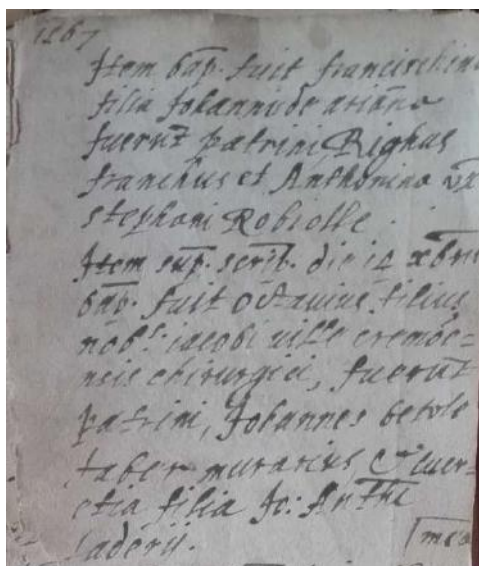 1567
Item bap. fuit francischina
filia Johanni de ariano
fuerut patrini Righus
franchus et Anthonina ux
stephani Robiolle .
Item sup. scrib. die 14 xbris
bap. fuit octavius filius
nobs. iacobi
chirurgici, fuerut
patrini, Johannes betole
faber murarius, &
filia Jo: Anthi